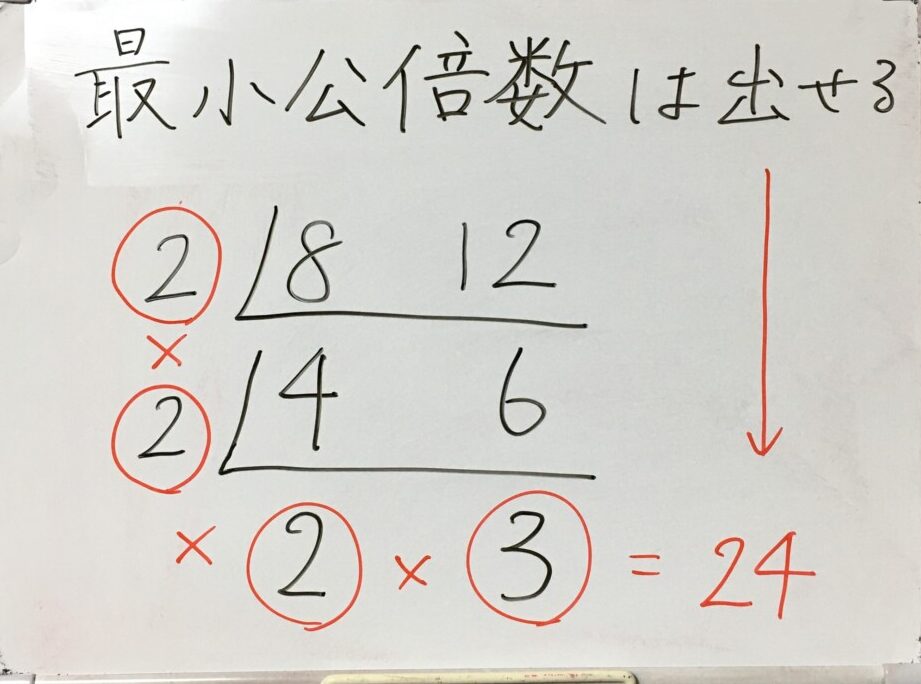 最小公倍数は出せる
2 8 12
×
2 4 6
× 2 × 3 = 24